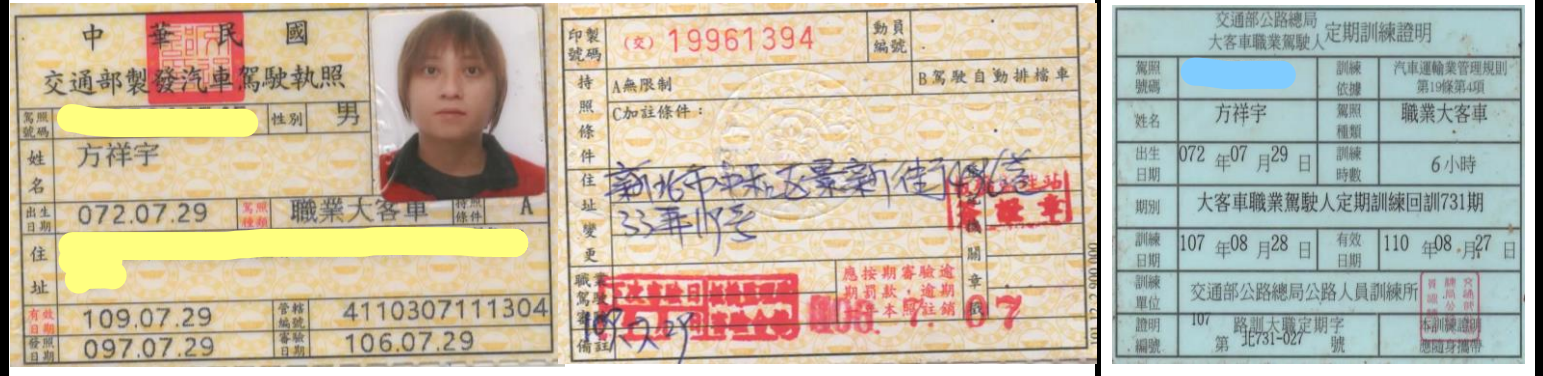 中華民國
交通部製發汽車駕駛執照
駕照號碼
性別 男
姓名 方祥宇
出生日期 072.07.29 駕照種類 職業大客車 持照條件 A
住址
有效日期 109.07.29 管轄編號 4110307111304
發照日期 097.07.29 審驗日期 106.07.29
印製號碼 (交) 19961394 動員編號
持照條件 A無限制 B駕駛自動排檔車
C加註條件:
住址變更 新北市中和区景新街
33弄19号
機關章戳
職業駕駛審驗
應按期審驗逾期罰款,逾期
本照註銷
備註 109.7.29
交通部公路總局
大客車職業駕駛人 定期訓練證明
駕照號碼 訓練依據 汽車運輸業管理規則
第19條第4項
姓名 方祥宇 駕照種類 職業大客車
出生日期 072年07月29日 訓練時數 6小時
期別 大客車職業駕駛人定期訓練回訓731期
訓練日期 107年08月28日 有效日期 110年08月27日
訓練單位 交通部公路總局公路人員訓練所
證明編號 107 路訓大職定期字 本訓練證明
第 北731-027 號 應隨身攜帶